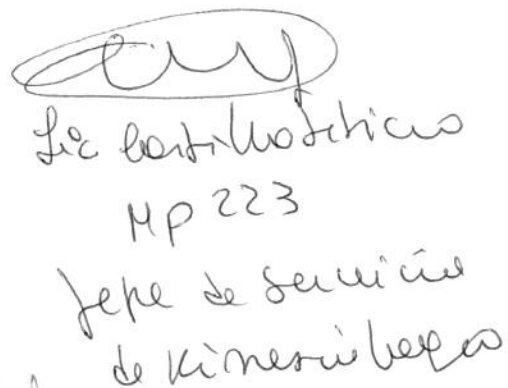 Lic Castillo Leticia
MP 223
Jefe de Servicio
de Kinesiologia